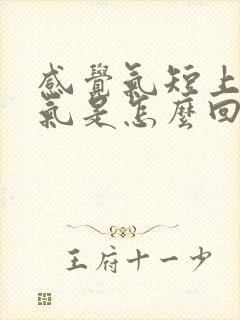 感覺氣短上
氣是怎麼回
王府十一少